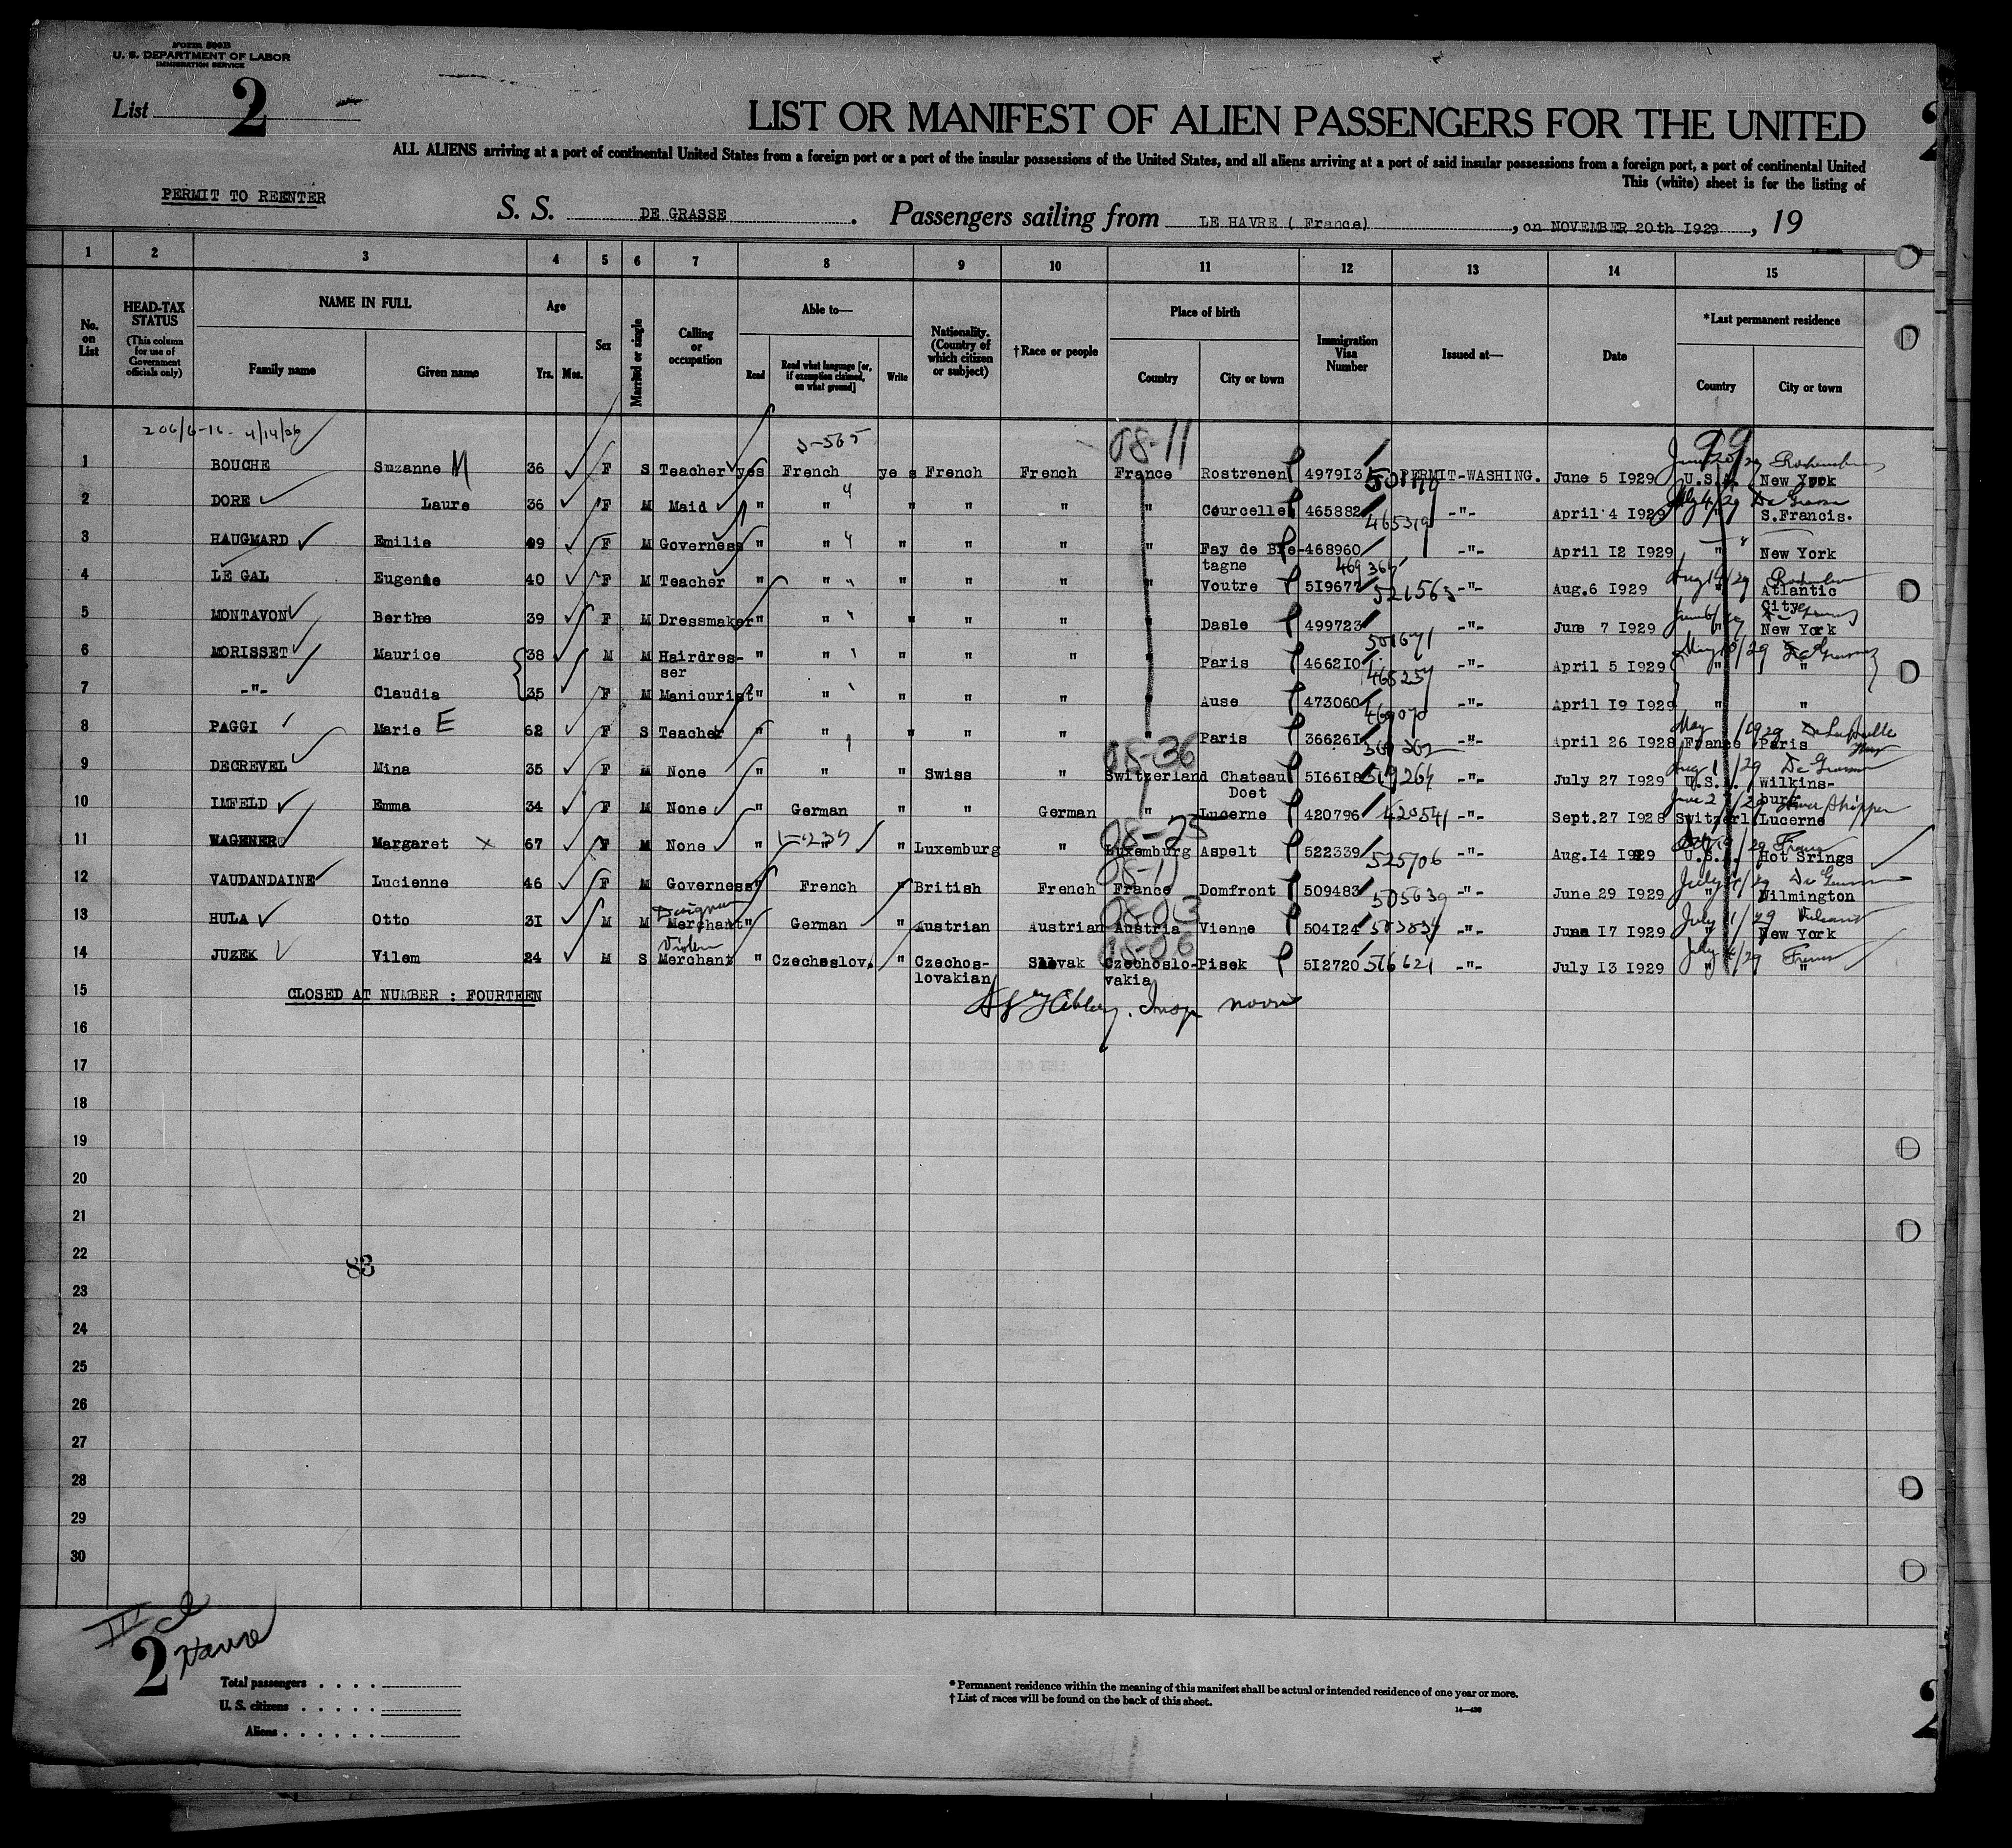 Form 500B
U. S. DEPARTMENT OF LABOR
IMMIGRATION SERVICE
List 2
LIST OR MANIFEST OF ALIEN PASSENGERS FOR THE UNITED
ALL ALIENS arriving at a port of continental United States from a foreign port or a port of the insular possessions of the United States, and all aliens arriving at a port of said insular possessions from a foreign port, a port of continental United
This (white) sheet is for the listing of
PERMIT TO REENTER
S. S. DE GRASSE. Passengers sailing from LE HAVRE ( France), on NOVEMBER 20th I929, 19
1 2 3 4 5 6 7 8 9 10 11 12 13 14 15
No. on List
HEAD-TAX STATUS
(This column for use of Government officials only)
NAME IN FULL
Family name Given name
Age
Yrs. Mos.
Sex
Married or single
Calling or occupation
Able to—
Read
Read what language [or, if exemption claimed, on what ground]
Write
Nationality. (Country of which citizen or subject)
†Race or people
Place of birth
Country City or town
Immigration Visa Number
Issued at—
Date
*Last permanent residence
Country City or town
206/6-16- 4/14/06 5-565 08-11 99
1 BOUCHE Suzanne M 36 F S Teacher yes French ye s French French France Rostrenen 497913 PERMIT-WASHING. June 5 I929 U.S.A. New York
2 DORE Laure 36 F M Maid " " " " " " Courcelle 465882 -"- April 4 I929 " S.Francis.
3 HAUGMARD Emilie 49 F M Governess " " " " " " Fay de Bre-tagne 468960 -"- April I2 I929 " New York
4 LE GAL Eugenie 40 F M Teacher " " " " " " Voutre 5I9677 -"- Aug.6 I929 " Atlantic City
5 MONTAVON Berthe 39 F M Dressmaker " " " " " " Dasle 499723 -"- June 7 I929 " New York
6 MORISSET Maurice 38 M M Hairdres-ser " " " " " " Paris 4662I0 -"- April 5 I929 " "
7 -"- Claudia 35 F M Manicurist " " " " " " Ause 473060 -"- April I9 I929 " "
8 PAGGI Marie E 62 F S Teacher " " " " " " Paris 36626I -"- April 26 I928 France Paris
08-36
9 DECREVEL Mina 35 F M None " " " Swiss " Switzerland Chateau Doet 5I66I8 519264 -"- July 27 I929 U.S.A. Wilkins-burk
10 IMFELD Emma 34 F M None " German " " German " Lucerne 420796 420541 -"- Sept.27 I928 Switzerl Lucerne
08-25
11 WAGENER Margaret x 67 F M None " " " Luxemburg " Luxemburg Aspelt 522339 525706 -"- Aug.I4 I929 U.S.A. Hot Srings
08-11
12 VAUDANDAINE Lucienne 46 F M Governess " French " British French France Domfront 509483 505639 -"- June 29 I929 " Wilmington
Designer 08-03
13 HULA Otto 3I M M Merchant " German " Austrian Austrian Austria Vienne 504I24 -"- June I7 I929 " New York
Violin 08-06
14 JUZEK Vilem 24 M S Merchant " Czechoslov. " Czechos-lovakian Slovak Czechoslo-vakia Pisek 5I2720 516621 -"- July I3 I929 " "
15 CLOSED AT NUMBER : FOURTEEN
16
17
18
19
20
21
22
83
23
24
25
26
27
28
29
30
II cl
2 Havre
Total passengers
U. S. citizens
Aliens
* Permanent residence within the meaning of this manifest shall be actual or intended residence of one year or more.
† List of races will be found on the back of this sheet.
2